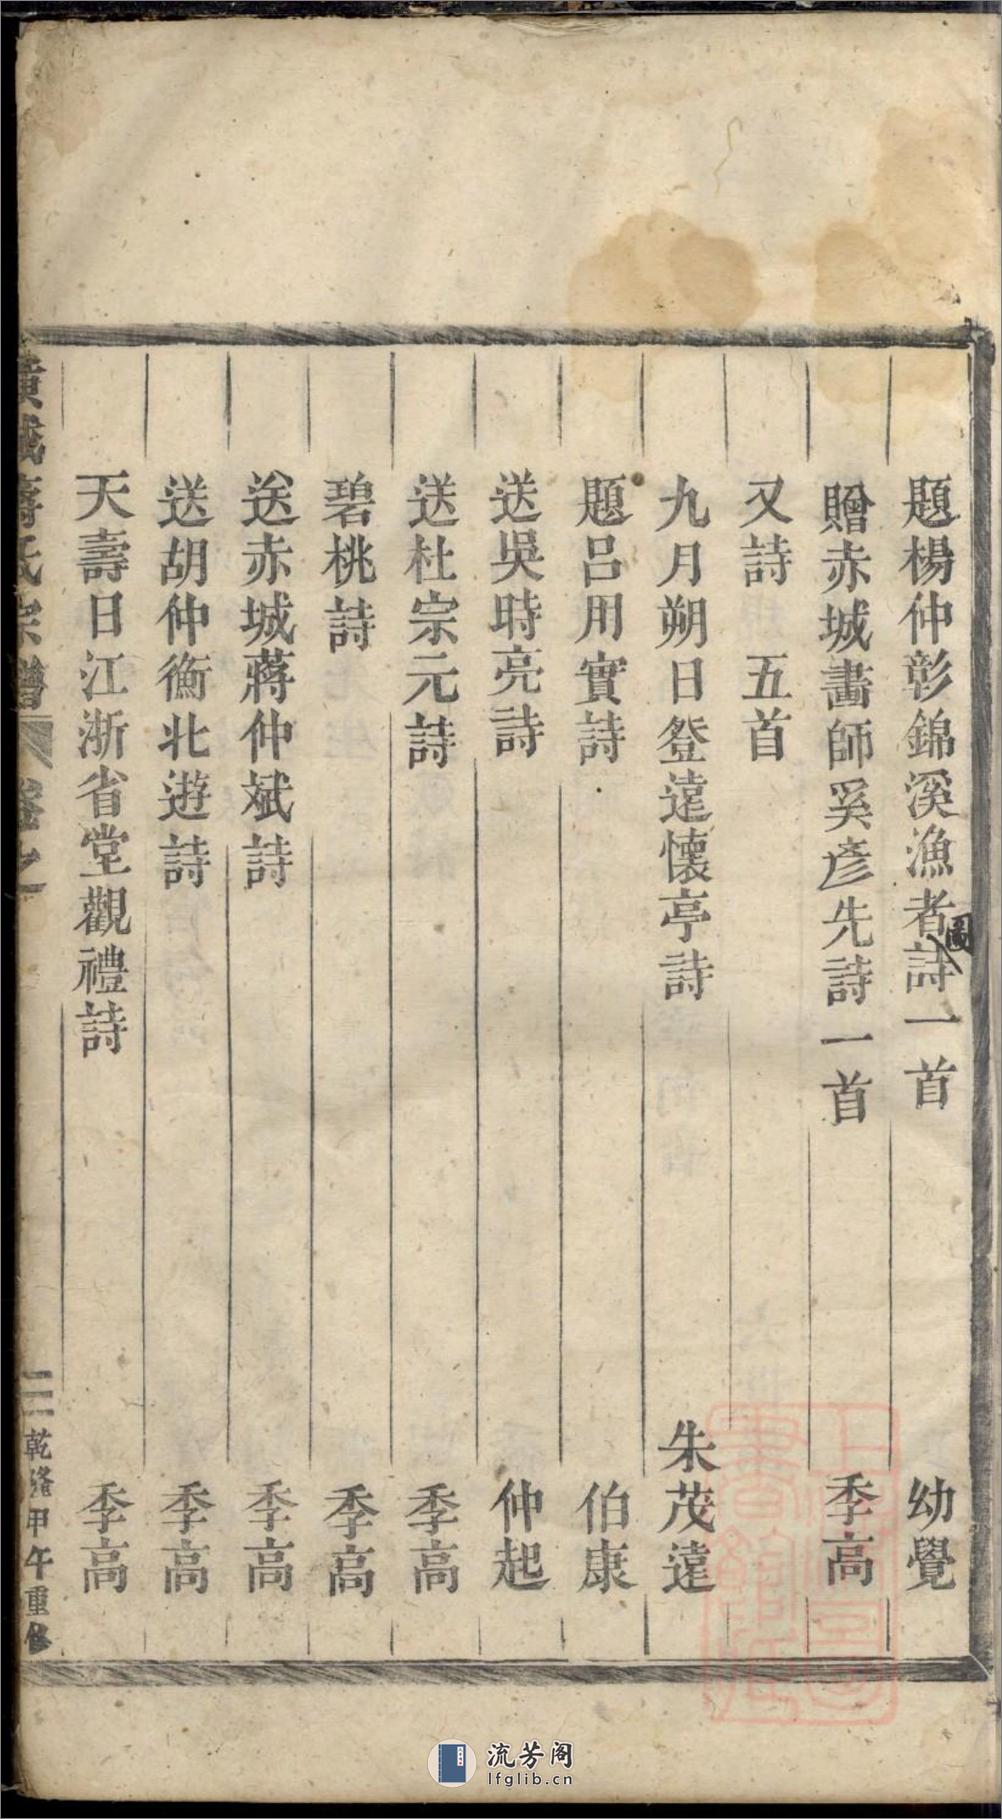 題楊仲彰錦溪漁者詩一首 幼覺
圖
贈赤城畵師奚彥先詩一首 季高
又詩 五首
九月朔日登遠懷亭詩 朱茂遠
題呂用實詩 伯康
送吳時亮詩 仲起
送杜宗元詩 季高
碧桃詩 季高
送赤城蔣仲斌詩 季高
送胡仲衡北遊詩 季高
天壽日江浙省堂觀禮詩 季高
氏宗譜 卷之 二 乾隆甲午重修
流芳阁
lfglib.cn